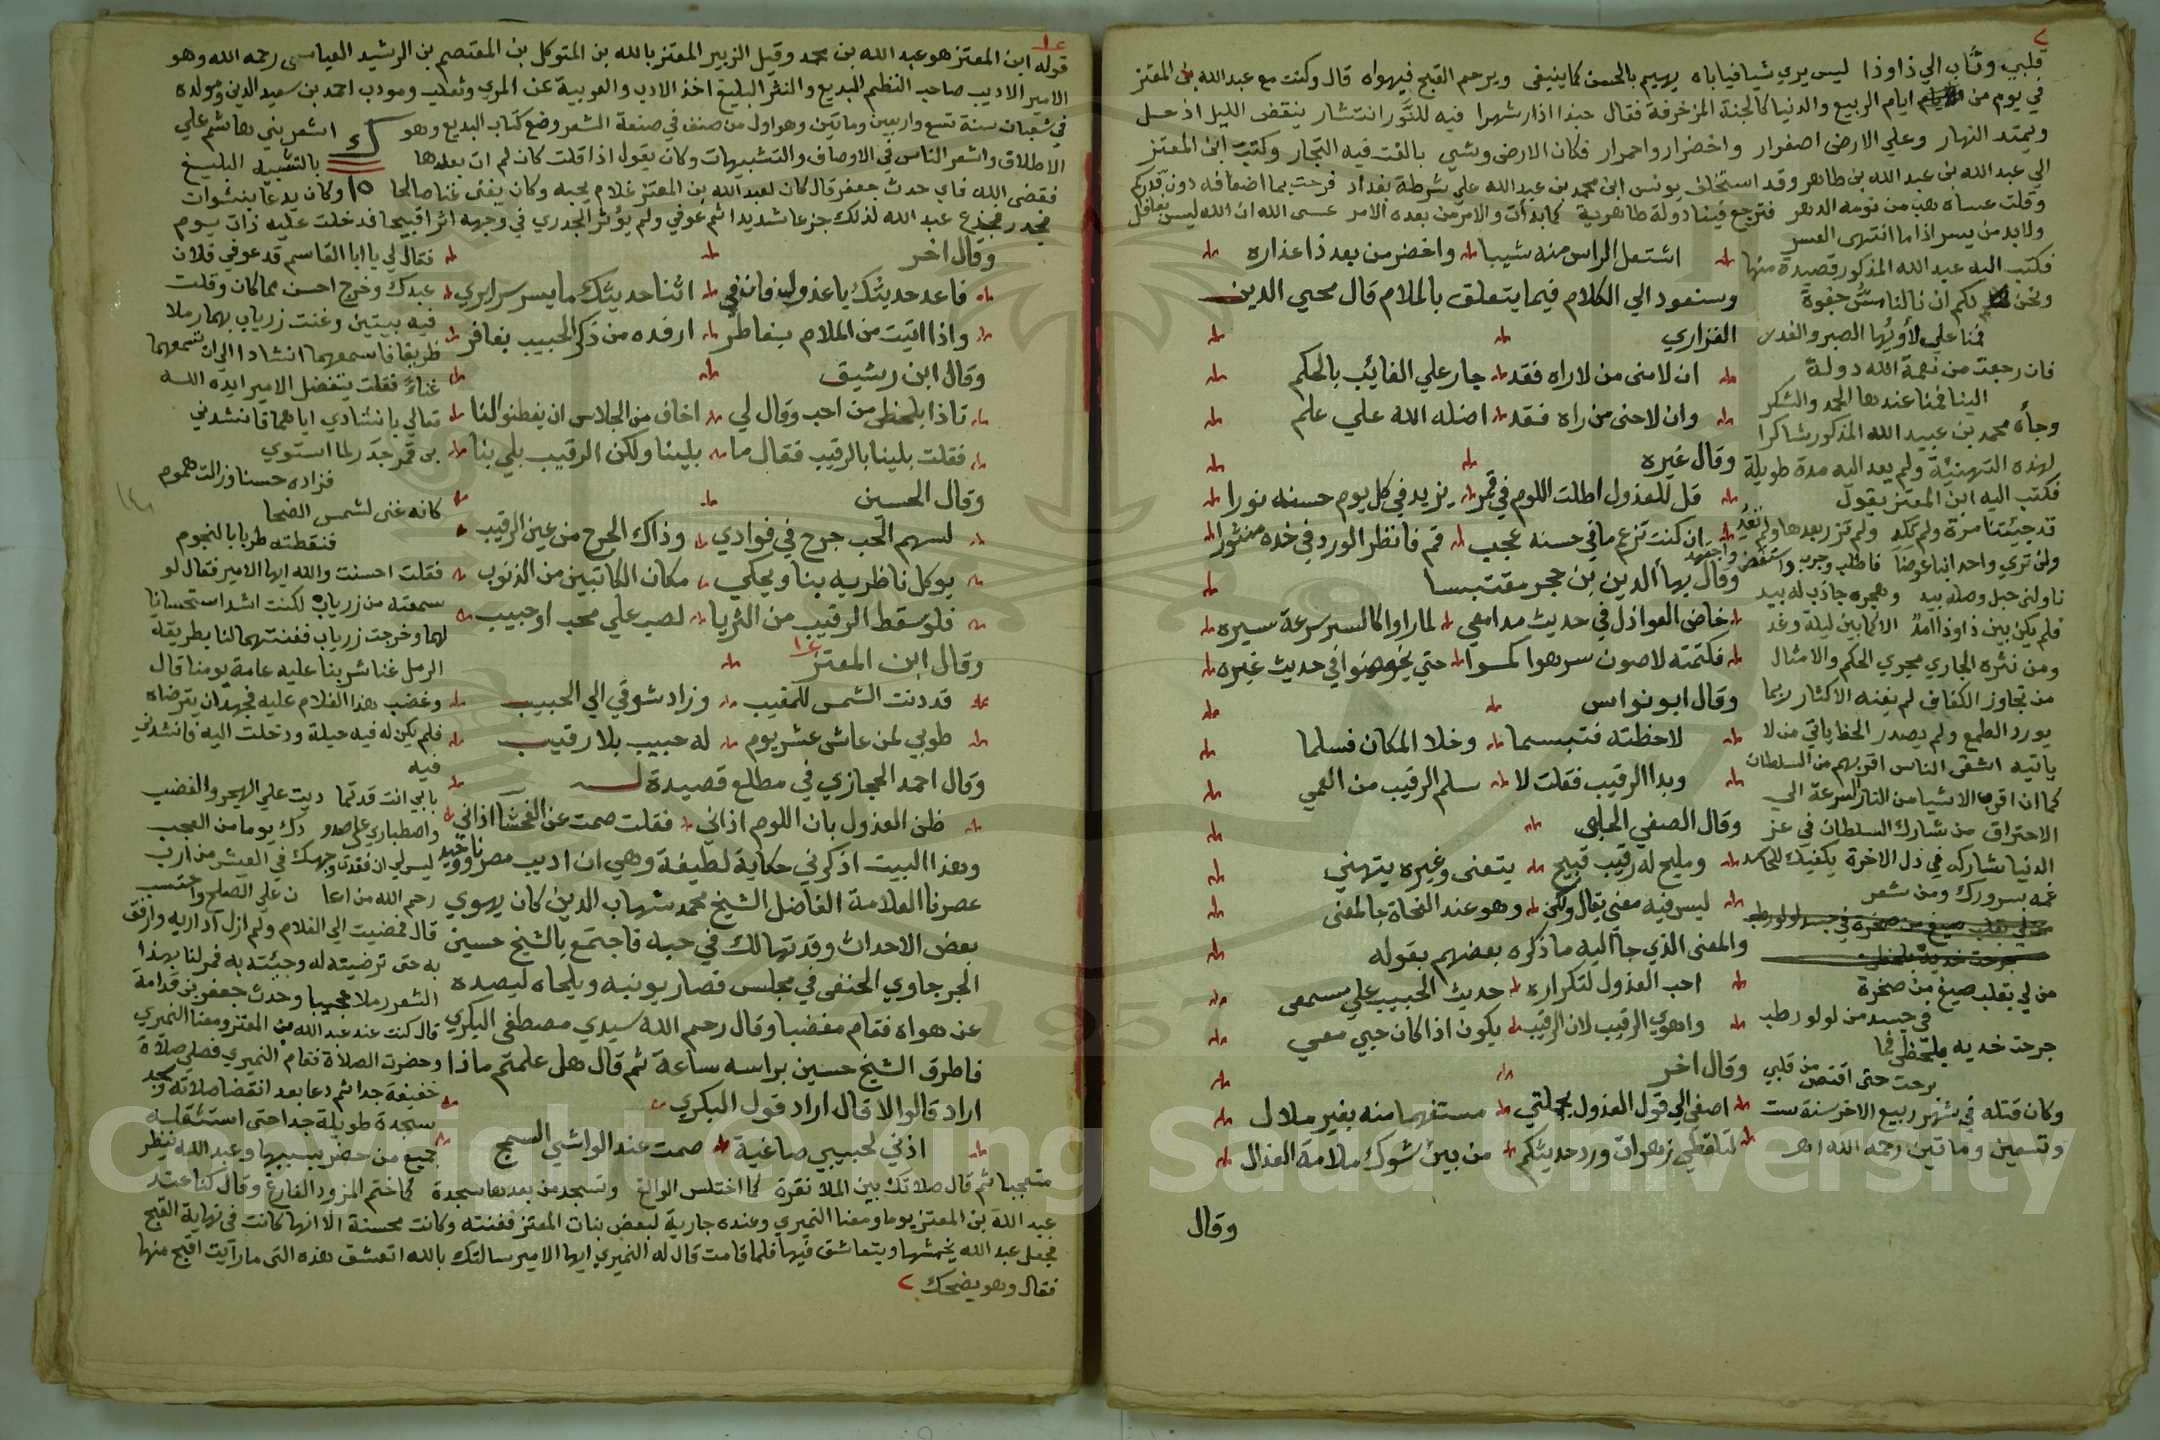 قلبي وثاب الي ذا وذا ليس يري شيا فياباه يهيم بالحسن كما ينبغي ويرحم القبح فيهواه قال وكنت مع عبد الله بن المعتز
في يوم من ايام الربيع والدنيا كالجنة المزخرفة فقال حبذا اذار شهرا فيه للنور انتشار ينقض الليل اذ حل
ويمتد النهار وعلي الارض اصفرار واخضرار واحمرار فكان الارض وشي بالغت فيه التجار وكتب ابن المعتز
الي عبد الله بن عبد الله بن طاهر وقد استخلف يونس ابن محمد بن عبد الله علي شرطة بغداد فرحت بما اضعافه دون قدركم
وقلت عساه هب من نومه الدهر فترجع فينا دولة طاهرية كما بدأت والامر من بعده الامر عسي الله ان الله ليس بغافل
ولا بد من يسر اذا ما انتهي العسر
اشتعل الراس منه شيبا واخضر من بعد ذا عذاره
وسنعود الي الكلام فيما يتعلق بالملام قال محيي الدين
الفزاري
ان لامني من لا راه فقد جار علي الغائب بالحكم
وان لاحني من راه فقد اضله الله علي علم
وقال غيره
قل للعذول اطلت اللوم في قمر يزيد في كل يوم حسنه نورا
ان كنت تزعم ما في حسنه عجب قم فانظر الورد في خده منثورا
وقال بهاء الدين بن حجر مقتبسا
خاض العواذل في حديث مدامعي لما راوا كالسر سرعة سيره
فكتمته لاصون سر هواكموا حتي يخوضوا في حديث غيره
وقال ابو نواس
لاحظته فتبسما وخلا المكان فسلما
وبدا الرقيب فقلت لا سلم الرقيب من العمي
وقال الصفي الحلي
ومليح له رقيب قبيح يتعني وغيره يتهني
ليس فيه معني يقال ولكن وهو عند النحاة جا لمعني
والمعني الذي جاء اليه ما ذكره بعضهم بقوله
احب العذول لتكراره حديث الحبيب علي مسمعي
واهوي الرقيب لان الرقيب يكون اذا كان حبي معي
وقال اخر
اصغي الي قول العذول بجملتي مستفهما منه بغير ملال
لتلقطي زهرات ورد حديثكم من بين شوك ملامة العذال
وقال
فكتب اليه عبد الله المذكور قصيدة منها
ونحن لكم ان نالنا مس جفوة
فمنا علي لأوئها الصبر والعذر
فان رجعت من نعمة الله دولة
الينا فمنا عندها الحمد والشكر
وجاءه محمد بن عبيد الله المذكور شاكرا
لهذه التهنية ولم يعد اليه مدة طويلة
فكتب اليه ابن المعتز يقول
قد جيئتنا مرة ولم تكد ولم تزر بعدها ولم تعد
ولن تري واحدا نبا عوضا فاطلب وجرب واستقص واجتهد
ناولني حبل وصله بيد وهجره جاذب له بيد
فلم يكن بين ذا وذا امد الا كما بين ليلة وغد
ومن نثره الجاري مجري الحكم والامثال
من تجاوز الكفاف لم يغنه الاكثار ربما
يورد الطمع ولم يصدر الحظ ياتي من لا
ياتيه اشقي الناس اقربهم من السلطان
كما ان اقرب الاشيا من النار السرعة الي
الاحتراق من شارك السلطان في عز
الدنيا شاركه في ذل الاخرة يكفيك للحاسد
غمه بسرورك ومن شعر
من لي بقلب صيغ من صخرة
في جسد من لولو رطب
جرحت خديه بلحظي فما
برحت حتي اقتص من قلبي
وكان قتله في شهر ربيع الاخر سنة ست
وتسعين وماتين رحمه الله اهـ
قوله ابن المعتز هو عبد الله بن محمد وقيل الزبير المعتز بالله بن المتوكل بن المعتصم بن الرشيد العباسي رحمه الله وهو
الامير الاديب صاحب النظم البديع والنثر البليغ اخذ الادب والعربية عن المبرد وثعلب ومودبه احمد بن سعيد الدين ومولده
في شعبان سنة تسع واربعين وماتين وهو اول من صنف في صنعة الشعر وضع كتاب البديع وهو اشعر بني هاشم علي
الاطلاق واشعر الناس في الاوصاف والتشبيهات وكان يقول اذا قلت كان لم ات بعدها بالتشبيه البليغ
فقضي الله فاي حدث جعفر قال كان لعبد الله بن المعتز غلام يحبه وكان يغني غنا صالحا وكان يدعا بنشوات
فجدر فجزع عبد الله لذلك جزعا شديدا ثم عوفي ولم يؤثر الجدري في وجهه اثرا قبيحا فدخلت عليه ذات يوم
وقال اخر
فاعد حديثك يا عذولي فانني اثنا حديثك ما يسر سرايري
واذا اتيت من الملام بغاطر ارفده من ذكر الحبيب بغافر
وقال ابن رشيق
تاذا بلحظي من احب وقال لي اخاف من الجلاس ان يفطنوا لنا
فقلت بلينا بالرقيب فقال ما بلينا ولكن الرقيب بلي بنا
وقال الحسين
لسهم الحب جرح في فوادي وذاك الجرح من عين الرقيب
يوكل ناظريه بنا ويحكي مكان الكاتبين من الذنوب
فلو سقط الرقيب من الثريا لصب علي محب او حبيب
وقال ابن المعتز
قد دنت الشمس للمغيب وزاد شوقي الي الحبيب
طوبي لمن عاش عشر يوم له حبيب بلا رقيب
وقال احمد الحجازي في مطلع قصيدة له
ظن العذول بان اللوم اذاني فقلت صمت عن الفحشا اذاني
وهذا البيت اذكرني حكاية لطيفة وهي ان اديب مصر ووحيد
عصرنا العلامة الفاضل الشيخ محمد شهاب الدين كان يهوي
بعض الاحداث وقد تهالك في حبه فاجتمع بالشيخ حسين
الجرجاوي الحنفي في مجلس فصار يونبه ويلحاه ليصده
عن هواه فقام مغضبا وقال رحم الله سيدي مصطفي البكري
فاطرق الشيخ حسين براسه ساعة ثم قال هل علمتم ماذا
اراد قالوا لا قال اراد قول البكري
اذني لحبيبي صاغية صمت عند الواشي السمج
فقال لي يا ابا القاسم قد عوفي فلان
عبدك وخرج احسن مما كان وقلت
فيه بيتين وغنت زرياب بهما رملا
ظريفا فاسمعهما انشادا الي ان تسمعهما
غناء فقلت يتفضل الامير ايده الله
تعالي بانشادي اياهما فانشدني
بي قمر جدر لما استوي
فزاده حسنا وزالت هموم
كانه غني لشمس الضحا
فنقطته طربا بالنجوم
فقلت احسنت والله ايها الامير فقال لو
سمعته من زرياب لكنت اشد استحسانا
لهما وخرجت زرياب فغنتهما لنا بطريقة
الرمل غنا شربنا عليه عامة يومنا قال
وغضب هذا الغلام عليه فجهد ان يترضاه
فلم يكن له فيه حيلة ودخلت اليه فانشدني
فيه
بابي انت قد تما ديت علي الهجر والغضب
واصطباري علي صدو دك يوما من العجب
ليس لي ان فقدت وجهك في العيش من ارب
رحم الله من اعا ن علي الصلح واحتسب
قال فمضيت الي الغلام ولم ازل اداريه وارفق
به حتي ترضيته له وجيئته به فمر لنا بهذا
الشعر رملا عجيبا وحدث جعفر بن قدامة
قال كنت عند عبد الله بن المعتز ومعنا النميري
وحضرت الصلاة فقام النميري فصلي صلاة
خفيفة جدا ثم دعا بعد انقضا صلاته وسجد
سجدة طويلة جدا حتي استثقله
جميع من حضر بسببها وعبد الله ينظر
متعجبا ثم قال صلاتك بين الملا نقرة كما اختلس الوالغ وتسجد من بعدها سجدة كما ختم المزود الفارغ وقال كنا عند
عبد الله بن المعتز يوما ومعنا النميري وعنده جارية لبعض بنات المعتز فغنته وكانت محسنة الا انها كانت في نهاية القبح
فجعل عبد الله يخمشها ويتعاشق فيها فلما قامت قال له النميري ايها الامير سالتك بالله اتعشق هذه التي ما رايت اقبح منها
فقال وهو يضحك ٢
Copyright © King Saud University
1957